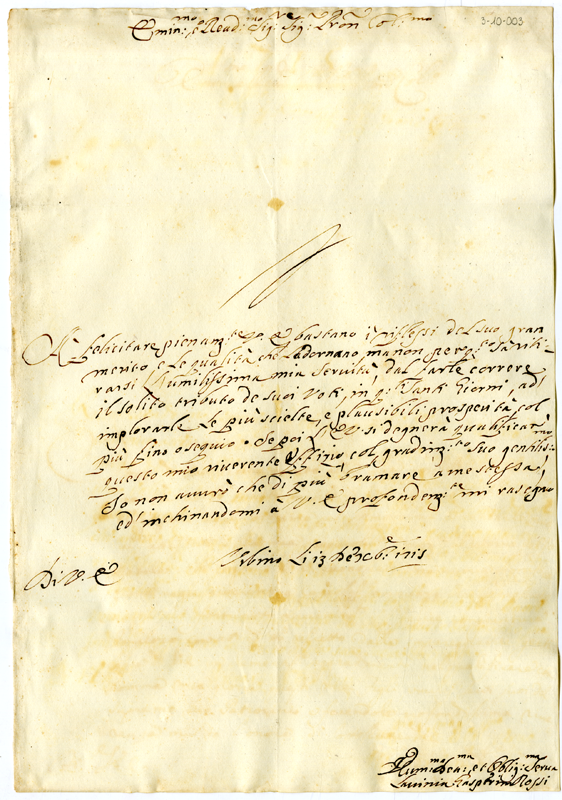 3-10-003
Emin:mo e Reud:mo Sig:re Sig:re Pron Col:mo
A felicitare pienam:te V. E. bastano i riflessi del suo gran
merito, e le qualità che l'adornano, ma non per q:to
rarsi l'umilissima mia servitù, dal farle correre
il solito tributo de suoi Voti, in q:ti Santi Giorni, ad
implorarle le più scielte, e plausibili prosperità, col
più fino ossequio. Se poi l'E. V. si degnerà qualificar
questo mio riverente Offizio col gradim:to suo gentiliss:mo
Io non avurò che di più bramare a me stessa,
ed inchinandomi à V. E. profondam:te mi rassegno
Di V. E.
Urbino Li 13 Xbre
Humi:ma Dev:ma et Oblig:ma Serva
Lavinia Rossi